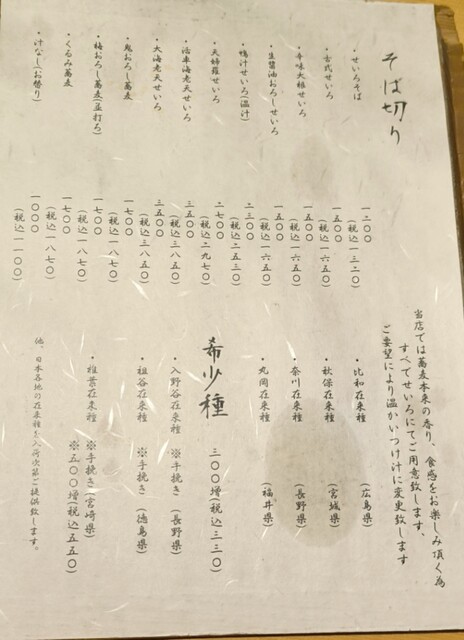 そば切り
・せいろそば 一二〇〇
(税込一三二〇)
・古式せいろ 一五〇〇
(税込一六五〇)
・辛味大根せいろ 一五〇〇
(税込一六五〇)
・生醤油おろしせいろ 一五〇〇
(税込一六五〇)
・鴨汁せいろ(温汁) 二三〇〇
(税込二五三〇)
・天婦羅せいろ 二七〇〇
(税込二九七〇)
・活車海老天せいろ 三五〇〇
(税込三八五〇)
・大海老天せいろ 三五〇〇
(税込三八五〇)
・鬼おろし蕎麦 一七〇〇
(税込一八七〇)
・梅おろし蕎麦(並打ち) 一七〇〇
(税込一八七〇)
・くるみ蕎麦 一七〇〇
(税込一八七〇)
・汁なし(お替り) 一〇〇〇
(税込一一〇〇)
当店では蕎麦本来の香り、食感をお楽しみ頂く為
すべてせいろにてご用意致します、
ご要望により温かいつけ汁に変更致します
・比和在来種 (広島県)
・秋保在来種 (宮城県)
・奈川在来種 (長野県)
・丸岡在来種 (福井県)
希少種 三〇〇増(税込三三〇)
・入野谷在来種 ※手挽き (長野県)
・祖谷在来種 ※手挽き (徳島県)
・椎葉在来種 ※手挽き(宮崎県)
※五〇〇増(税込五五〇)
他、日本各地の在来種を入荷次第ご提供致します。